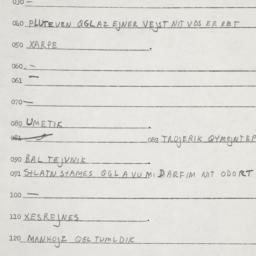 030 —
040 PLUTEVEN QGLAZ EJNER VEJST NIT VOS ER RET
050 XARPE .
060 —
061 —
070 —
080 UMETIK .
081 083 TROJERIK QYMEJNTEP
090 BAL TEJVNIK .
091 SHLATN SHAMES QGLA VU MI DARFIM NIT ODORT
100 — .
110 XESREJNES .
120 MANHOJZ QEL TUMLDIK .